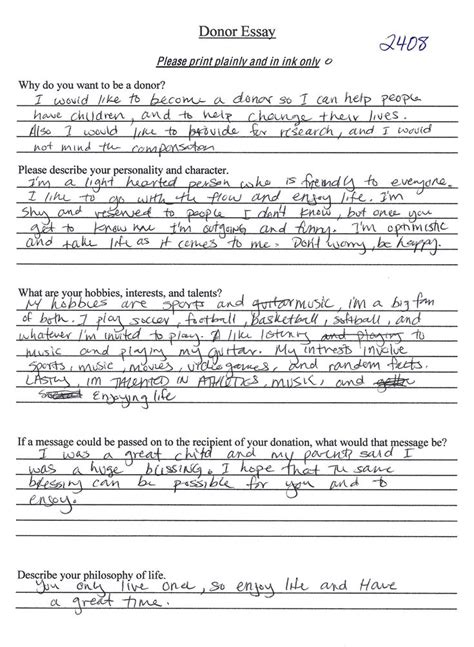 Donor Essay
2408
Please print plainly and in ink only
Why do you want to be a donor?
I would like to become a donor so I can help people
have children, and to help change their lives.
Also I would like to provide for research, and I would
not mind the compensation
Please describe your personality and character.
I'm a light hearted person who is friendly to everyone.
I like to go with the flow and enjoy life. I'm
shy and reserved to people I don't know, but once you
get to know me I'm outgoing and funny. I'm optimistic
and take life as it comes to me. Don't worry, be happy.
What are your hobbies, interests, and talents?
My hobbies are sports and guitar music, i'm a big fan
of both. I play soccer, football, basketball, softball, and
whatever I'm invited to play. I like listening and playing to
music and playing my guitar. My intrests involve
sports, music, movies, video games, and random facts.
LASTLY, im TALENTED IN ATHLETICS, MUSIC, and
Enjoying life
If a message could be passed on to the recipient of your donation, what would that message be?
I was a great child and my parents said I
was a huge blissing. I hope that the same
blessing can be possible for you and to
enjoy.
Describe your philosophy of life.
You only live once, so enjoy life and Have
a great time.